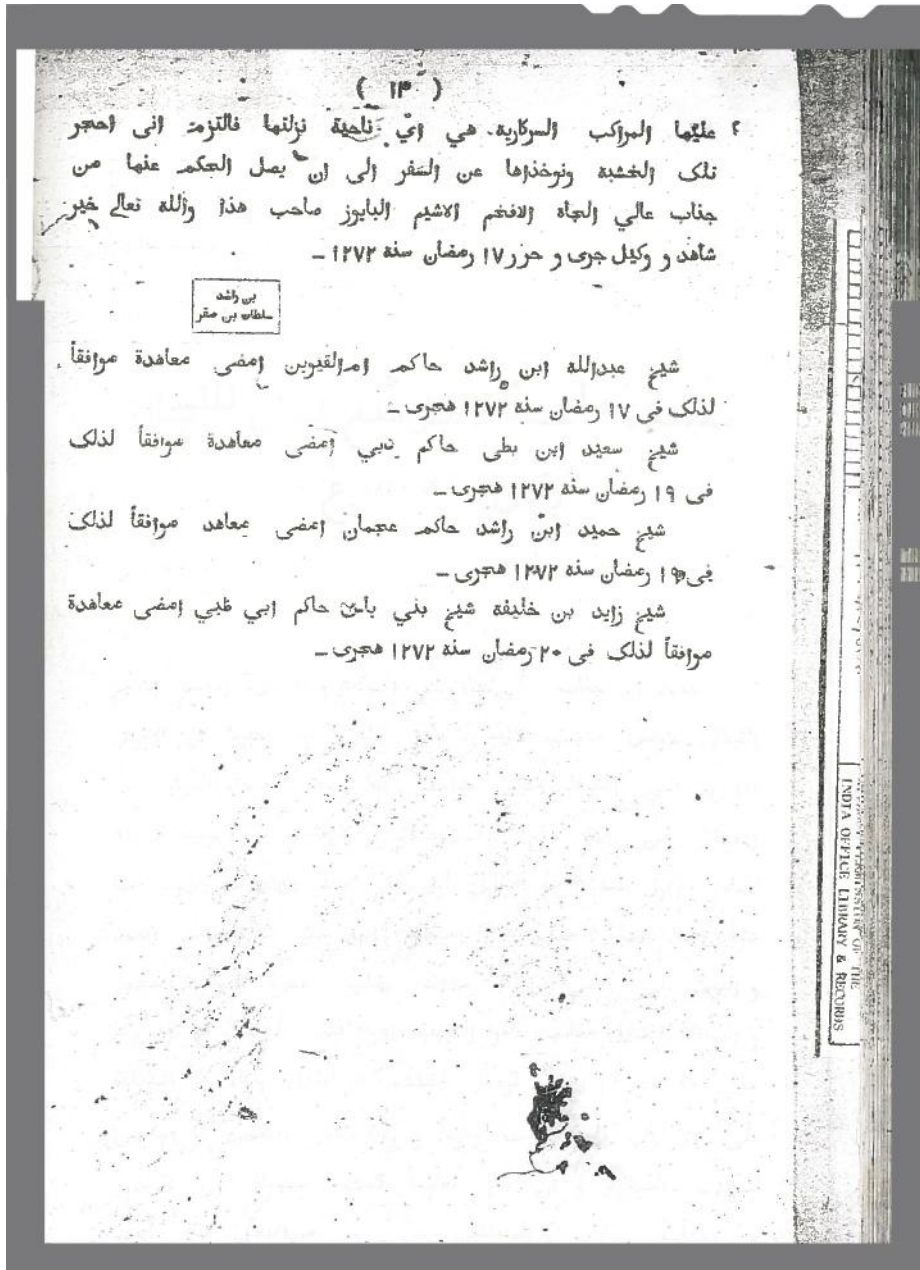 ( ١٣ )
٢ عليها المراكب السركارية هي اي ناحية نزلتها فالتزمت اني احجر
تلك الخشبة ونوخذاها عن السفر الى ان يصل الحكم عنها من
جناب عالي الجاه الافخم الاشيم الباليوز صاحب هذا والله تعالى خير
شاهد و وكيل جرى و حرر ١٧ رمضان سنة ١٢٧٢ ــ
بن راشد
سلطان بن صقر
شيخ عبدالله ابن راشد حاكم ام القيوين امضى معاهدة موافقاً
لذلك فى ١٧ رمضان سنه ١٢٧٢ هجرى ــ
شيخ سعيد ابن بطى حاكم دبي امضى معاهدة موافقاً لذلك
فى ١٩ رمضان سنه ١٢٧٢ هجرى ــ
شيخ حميد ابن راشد حاكم عجمان امضى معاهد موافقاً لذلك
فى ١٩ رمضان سنه ١٢٧٢ هجرى ــ
شيخ زايد بن خليفه شيخ بني ياس حاكم ابي ظبي امضى معاهدة
موافقاً لذلك فى ٢٠ رمضان سنه ١٢٧٢ هجرى ــ
OF THE
INDIA OFFICE LIBRARY & RECORDS